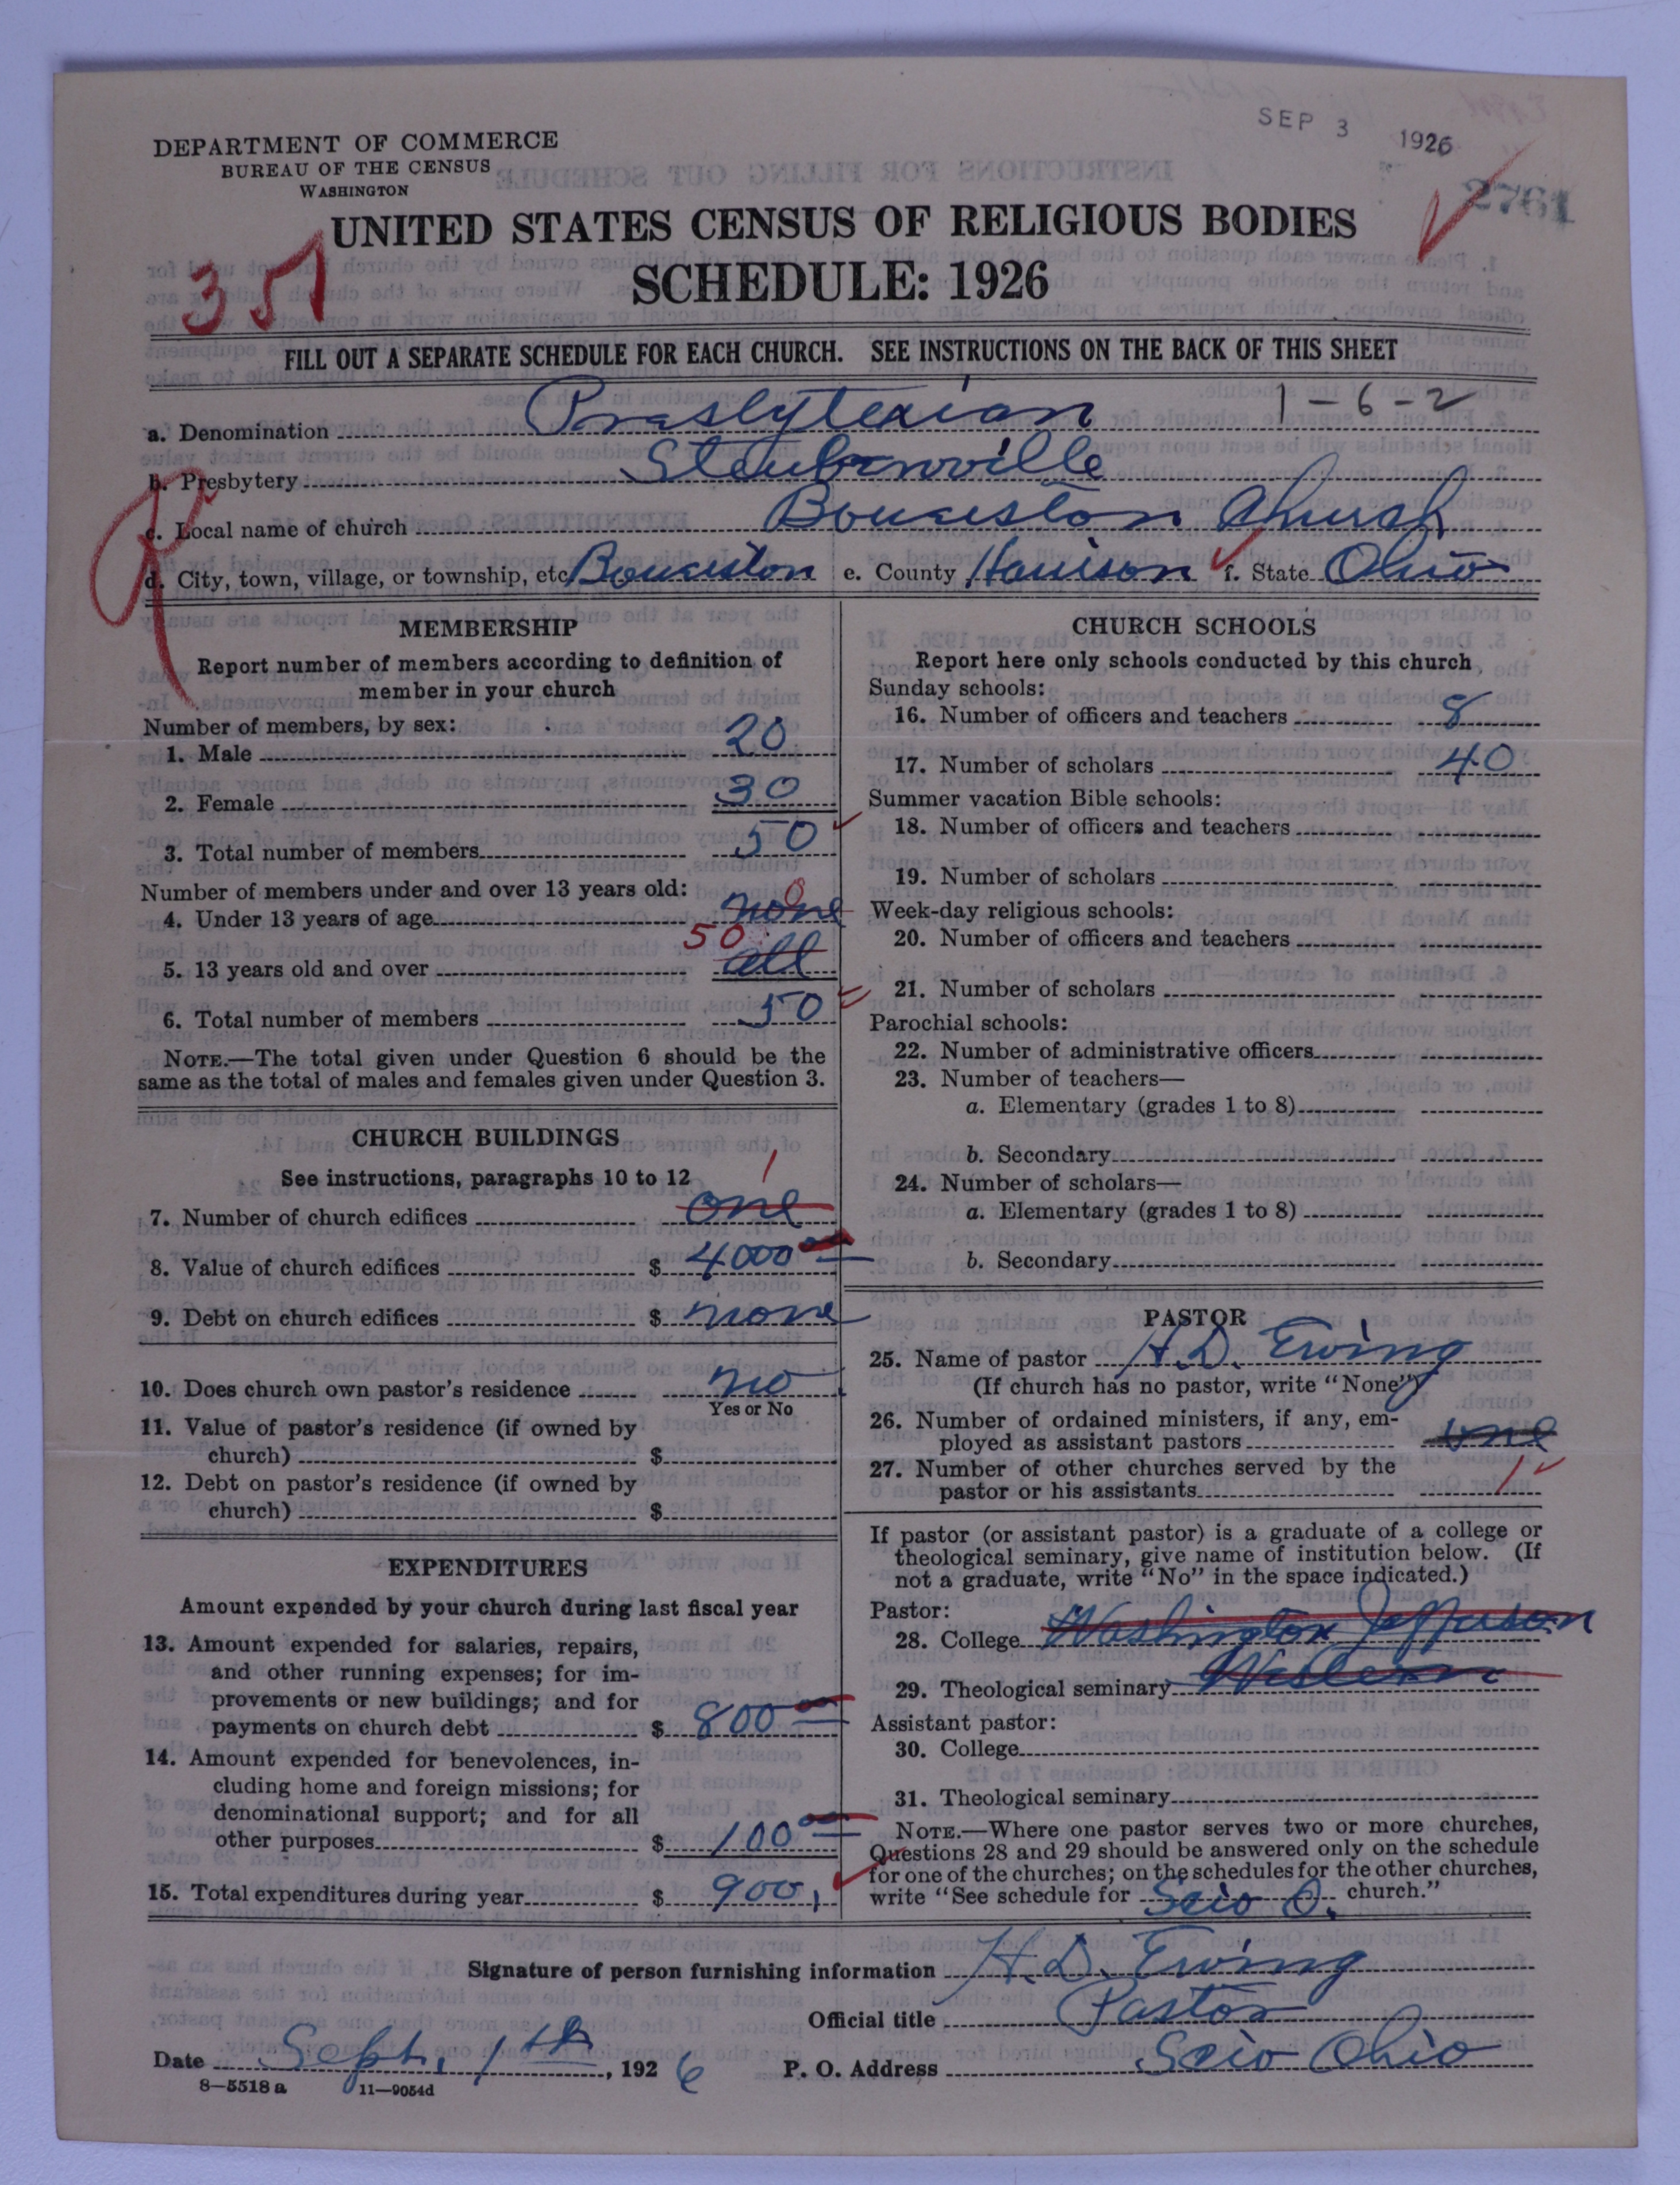 SEP 3 1926
DEPARTMENT OF COMMERCE
BUREAU OF THE CENSUS
WASHINGTON
2761
UNITED STATES CENSUS OF RELIGIOUS BODIES
SCHEDULE: 1926
FILL OUT A SEPARATE SCHEDULE FOR EACH CHURCH. SEE INSTRUCTIONS ON THE BACK OF THIS SHEET
1-6-2
a. Denomination Presbyterian
b. Presbytery Steubenville
c. Local name of church Bowerston Church
d. City, town, village, or township, etc. Bowerston e. County Harrison f. State Ohio
MEMBERSHIP
Report number of members according to definition of
member in your church
Number of members, by sex:
1. Male 20
2. Female 30
3. Total number of members 50
Number of members under and over 13 years old:
4. Under 13 years of age none 0
5. 13 years old and over all 50
6. Total number of members 50
NOTE.—The total given under Question 6 should be the
same as the total of males and females given under Question 3.
CHURCH BUILDINGS
See instructions, paragraphs 10 to 12
7. Number of church edifices one 1
8. Value of church edifices $ 4000 00
9. Debt on church edifices $ none
10. Does church own pastor's residence no
Yes or No
11. Value of pastor's residence (if owned by
church) $
12. Debt on pastor's residence (if owned by
church) $
EXPENDITURES
Amount expended by your church during last fiscal year
13. Amount expended for salaries, repairs,
and other running expenses; for im-
provements or new buildings; and for
payments on church debt $ 800 00
14. Amount expended for benevolences, in-
cluding home and foreign missions; for
denominational support; and for all
other purposes $ 100 00
15. Total expenditures during year $ 900,
CHURCH SCHOOLS
Report here only schools conducted by this church
Sunday schools:
16. Number of officers and teachers 8
17. Number of scholars 40
Summer vacation Bible schools:
18. Number of officers and teachers
19. Number of scholars
Week-day religious schools:
20. Number of officers and teachers
21. Number of scholars
Parochial schools:
22. Number of administrative officers
23. Number of teachers—
a. Elementary (grades 1 to 8)
b. Secondary
24. Number of scholars—
a. Elementary (grades 1 to 8)
b. Secondary
PASTOR
25. Name of pastor H.D. Ewing
(If church has no pastor, write "None")
26. Number of ordained ministers, if any, em-
ployed as assistant pastors one
27. Number of other churches served by the
pastor or his assistants 1
If pastor (or assistant pastor) is a graduate of a college or
theological seminary, give name of institution below. (If
not a graduate, write "No" in the space indicated.)
Pastor:
28. College Washington Jefferson
29. Theological seminary Western
Assistant pastor:
30. College
31. Theological seminary
NOTE.—Where one pastor serves two or more churches,
Questions 28 and 29 should be answered only on the schedule
for one of the churches; on the schedules for the other churches,
write "See schedule for Scio O. church."
Signature of person furnishing information H.D. Ewing
Official title Pastor
Date Sept. 1th, 1926 P. O. Address Scio Ohio
8—5518 a 11—9054d